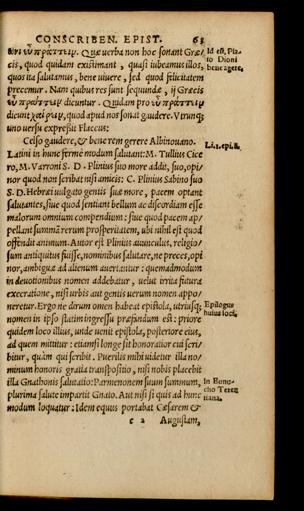 CONSCRIBEN. EPIST. 63
εὖ πράττειν. Quæ verba non hoc sonant Græ/
cis, quod quidam existimant, quasi iubeamus illos,
quos ita salutamus, bene vivere, sed quod felicitatem
precemur. Nam quibus res sunt secundæ, ij Græcis
εὖ πράττειν dicuntur. Quidam pro εὖ πράττειν
dicunt χαίρειν, quod apud nos sonat gaudere. Vrunq;
uno versu expressit Flaccus:
Celso gaudere, & bene rem gerere Albinouano.
Latini in hunc fermè modum salutant: M. Tullius Cice
ro, M. Varroni S. D. Plinius suo more addit, suo, opi/
nor quod non scribat nisi amicis: C. Plinius Sabino suo
S. D. Hebræi vulgato gentis suæ more, pacem optant
salutantes, siue quod sentiant bellum ac discordiam esse
malorum omnium compendium: siue quod pacem ap/
pellant summã rerum prosperitatem, ubi nihil est quod
offendit animum. Autor est Plinius auunculus, religio/
sum antiquitus fuisse, nominibus salutare, ne preces, opi
nor, ambiguæ ad alienum auertantur: quemadmodum
in deuotionibus nomen addebatur, velut irrita futura
execratione, nisi urbis aut gentis uerum nomen appo/
neretur. Ergo ne dirum omen habeat epistola, utriusq;
nomen in ipso statim ingressu præfandum est: priore
quidem loco illius, unde uenit epistola, posteriore eius,
ad quem mittitur: etiamsi longe sit honoratior cui scri/
bitur, quàm qui scribit. Puerilis mihi uidetur illa no/
minum honoris gratia transpositio, nisi nobis placebit
illa Gnathonis salutatio: Parmenonem suum summum,
plurima salute impartit Gnato. Aut nisi si quis ad hunc
modum loquatur: Idem equus portabat Cæsarem &
c 2 Augustam,
Id est, Pla/
to Dioni
bene agere.
Li. 1. epi. 8.
Epilogus
huius loci.
In Eunu-
cho Teren
tiana.